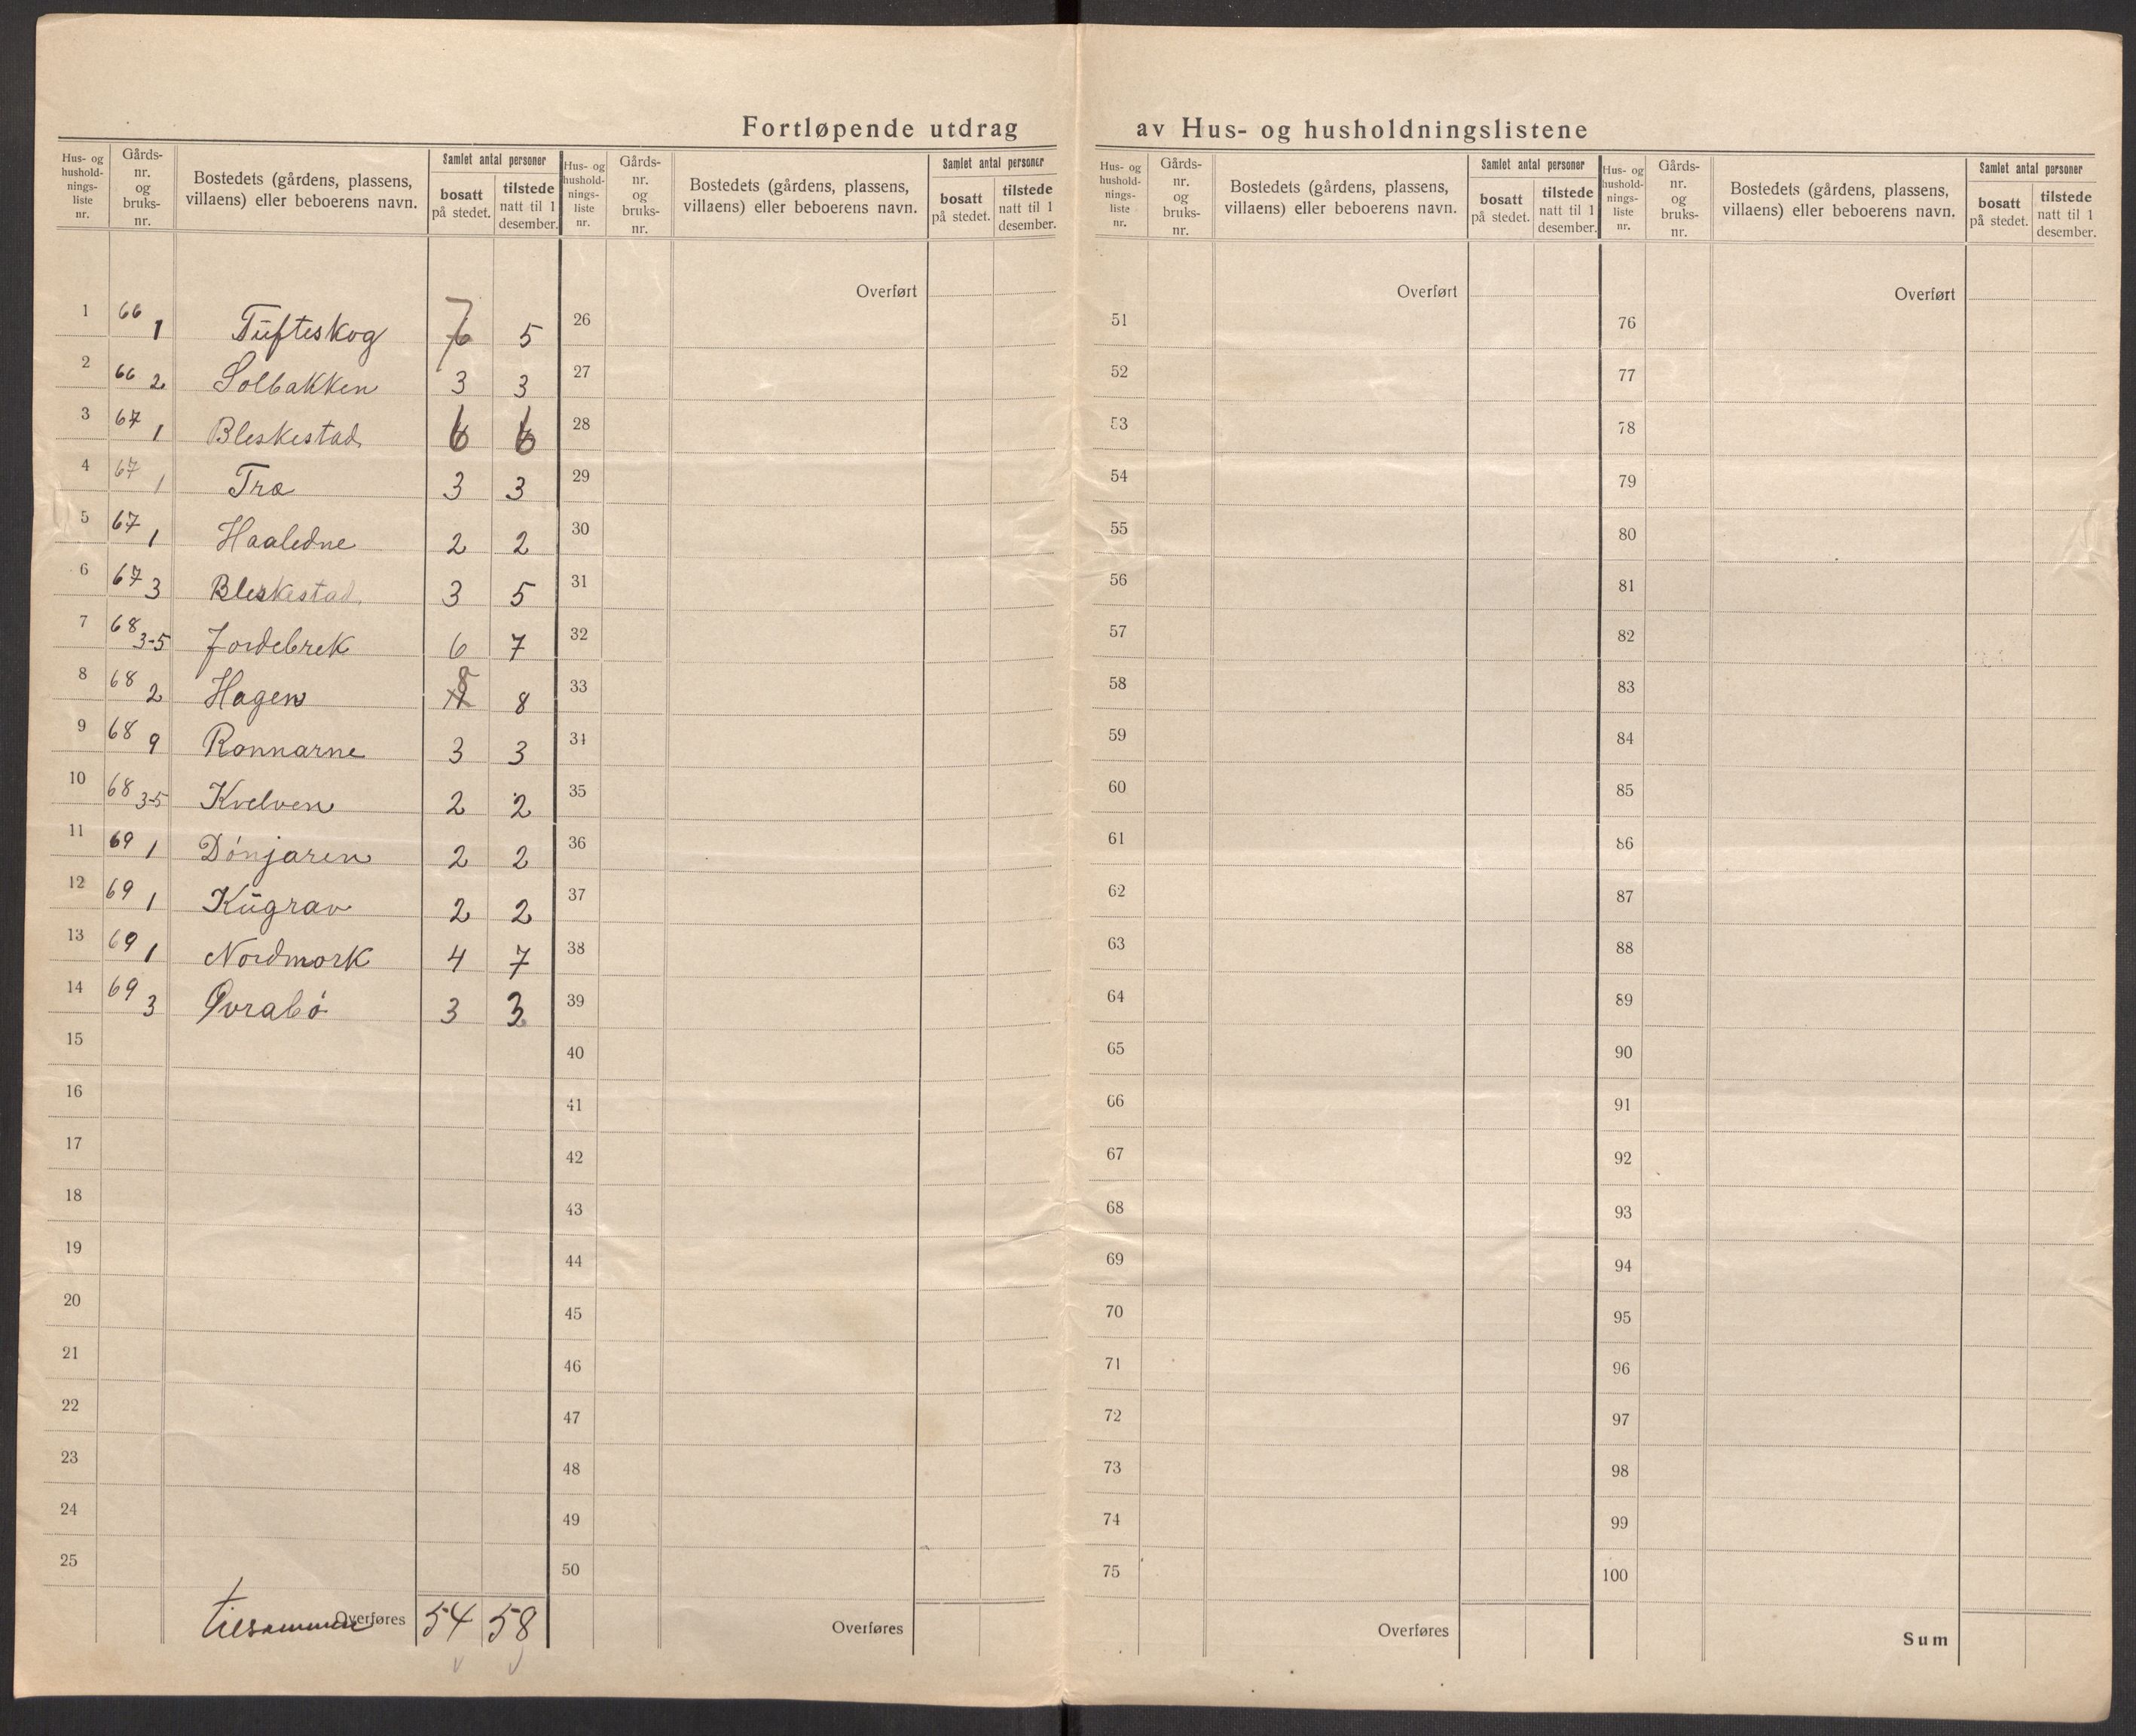 Fortløpende utdrag av Hus- og husholdningslistene
Hus- og hushold- nings- liste nr. | Gårds- nr. og bruks- nr. | Bostedets (gårdens, plassens, villaens) eller beboerens navn. | Samlet antal personer | bosatt på stedet. | tilstede natt til 1 desember.
Hus- og hushold- nings- liste nr. | Gårds- nr. og bruks- nr. | Bostedets (gårdens, plassens, villaens) eller beboerens navn. | Samlet antal personer | bosatt på stedet. | tilstede natt til 1 desember.
Hus- og hushold- nings- liste nr. | Gårds- nr. og bruks- nr. | Bostedets (gårdens, plassens, villaens) eller beboerens navn. | Samlet antal personer | bosatt på stedet. | tilstede natt til 1 desember.
Hus- og hushold- nings- liste nr. | Gårds- nr. og bruks- nr. | Bostedets (gårdens, plassens, villaens) eller beboerens navn. | Samlet antal personer | bosatt på stedet. | tilstede natt til 1 desember.
Overført Overført Overført
1 66 1 Tufteskog 7 6 5 26 51 76
2 66 2 Solbakken 3 3 27 52 77
3 67 1 Bleskestad 6 6 28 53 78
4 67 1 Træ 3 3 29 54 79
5 67 1 Haaledne 2 2 30 55 80
6 67 3 Bleskestad 3 5 31 56 81
7 68 3-5 Jordebrek 6 7 32 57 82
8 68 2 Hagen 8 8 33 58 83
9 68 9 Ronnarne 3 3 34 59 84
10 68 3-5 Kvelven 2 2 35 60 85
11 69 1 Dónjaren 2 2 36 61 86
12 69 1 Kūgrav 2 2 37 62 87
13 69 1 Nordmork 4 7 38 63 88
14 69 3 Øvrabó 3 3 39 64 89
15 40 65 90
16 41 66 91
17 42 67 92
18 43 68 93
19 44 69 94
20 45 70 95
21 46 71 96
22 47 72 97
23 48 73 98
24 49 74 99
25 50 75 100
tilsammen Overføres 54 58 Overføres Overføres Sum